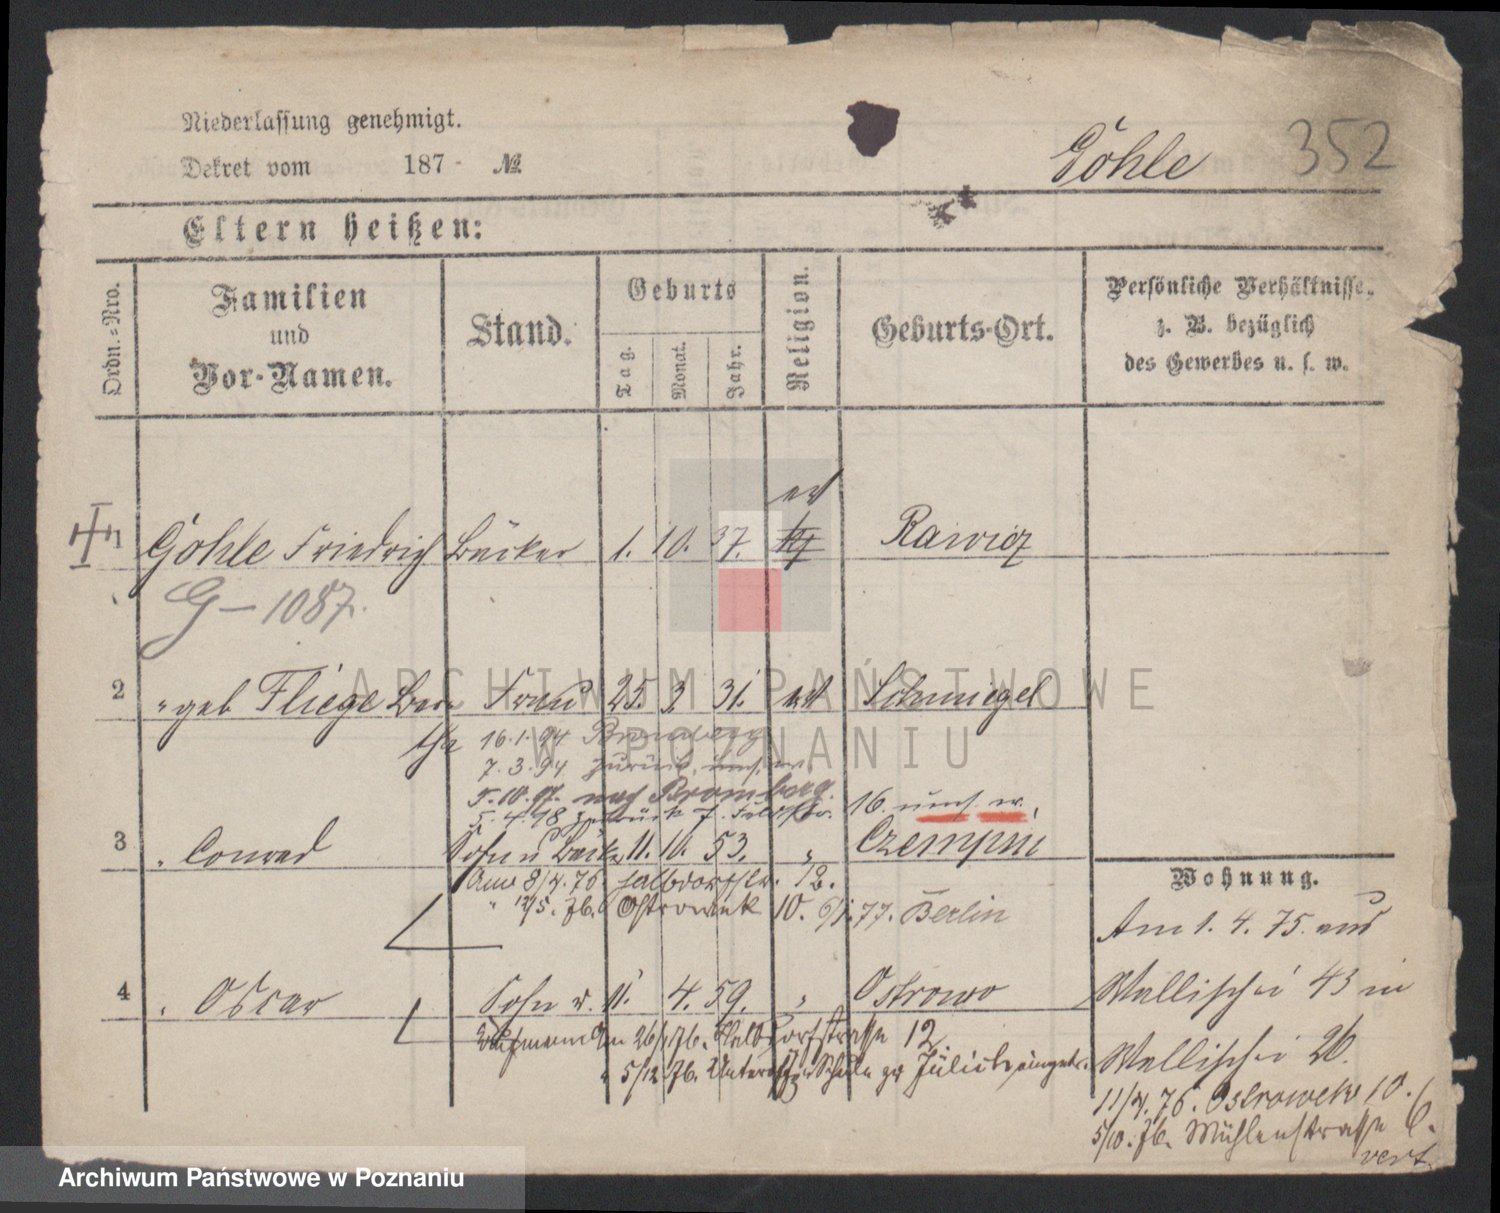 Niederlassung genehmigt.
Dekret vom 187 - №
Göhle 352
Eltern heißen:
Ordn.=Nro.
Familien
und
Vor-Namen.
Stand.
Geburts
Tag.
Monat.
Jahr.
Religion.
Geburts-Ort.
Persönliche Verhältnisse,
z. B. bezüglich
des Gewerbes u. s. w.
ev
1 Göhle Friedrich Bäcker 1. 10. 37. Rawicz
G-1087.
2 " geb Fliege Ber= Frau 25. 3. 31. ev Schmiegel
tha 16.1.94 Bromberg
7.3.94 zurück,
5.10.97. nach Bromberg.
5.4.98 zurück 7. 16.
3 " Conrad Sohn u Bäcker 11. 10. 53. " Czempin
Am 8/4.76. Halbdorfstr. 12.
" 12/5.76. Ostrowek 10. 6/1.77. Berlin
4 " Oscar Sohn 11. 4. 59. " Ostrowo
Am 26/4.76. Halbdorfstrasse 12.
" 5/12.76. Unteroffizier Schule zu Jülich eingetr.
Wohnung.
Am 1. 4. 75. aus
Wallischei 43 in
Wallischei 26.
11/4.76. Ostrowek 10.
5/10.76. Mühlenstrasse 6.
vert.
ARCHIWUM PAŃSTWOWE
W POZNANIU
Archiwum Państwowe w Poznaniu